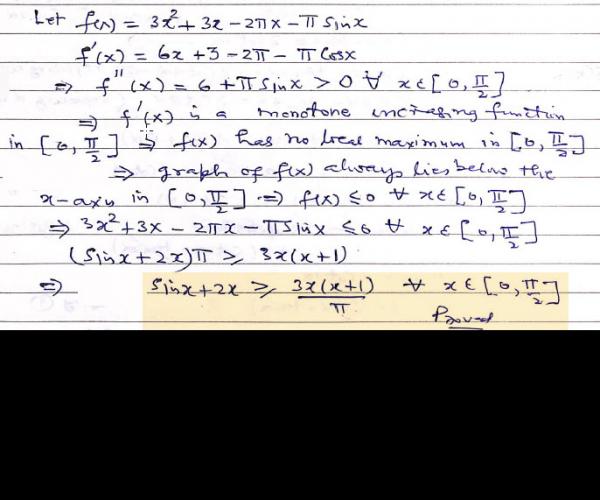 Let f(x) = 3x² + 3x - 2πx - π sinx
f'(x) = 6x + 3 - 2π - π cosx
⇒ f''(x) = 6 + π sinx > 0 ∀ x ∈ [0, π/2]
⇒ f'(x) is a monotone increasing function
in [0, π/2] ⇒ f(x) has no local maximum in [0, π/2]
⇒ graph of f(x) always lies below the
x-axis in [0, π/2] ⇒ f(x) ≤ 0 ∀ x ∈ [0, π/2]
⇒ 3x² + 3x - 2πx - π sinx ≤ 0 ∀ x ∈ [0, π/2]
(sinx + 2x)π ≥ 3x(x+1)
⇒ sinx + 2x ≥ 3x(x+1)/π ∀ x ∈ [0, π/2]
Proved